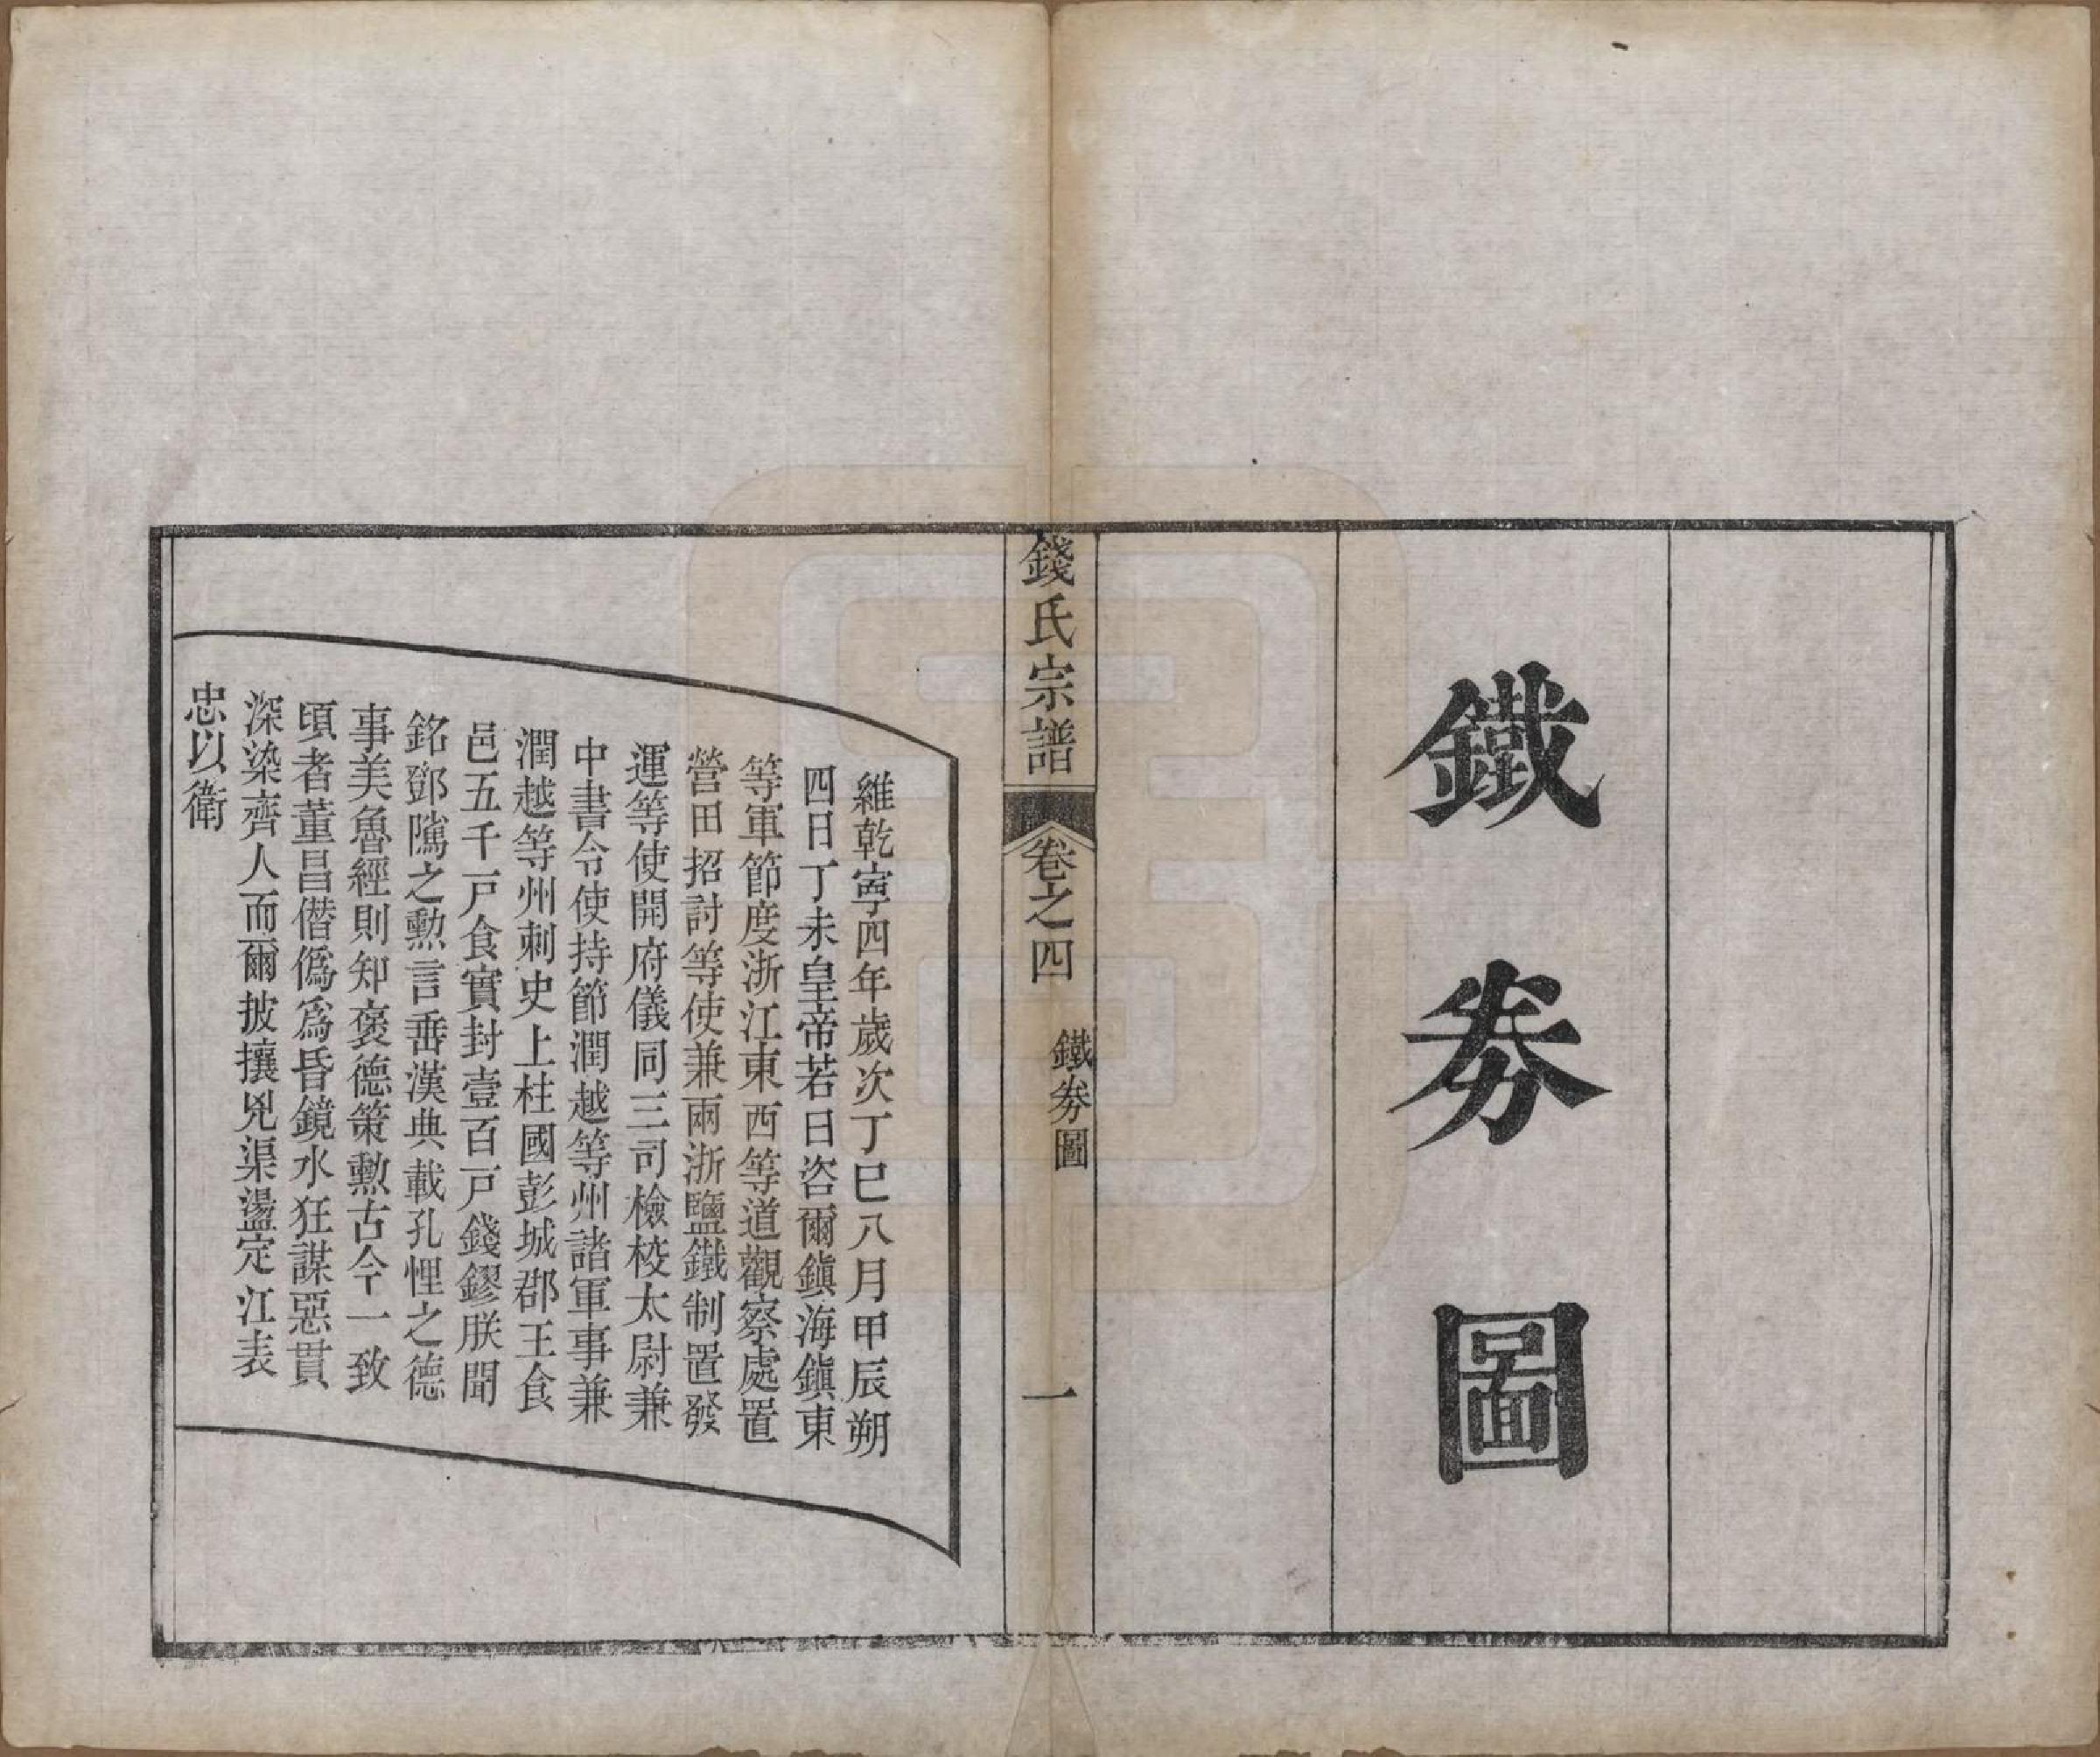 鐵劵圖
錢氏宗譜
卷之四
鐵劵圖
一
維乾寧四年歲次丁巳八月甲辰朔
四日丁未皇帝若曰咨爾鎭海鎭東
等軍節度浙江東西等道觀察處置
營田招討等使兼兩浙鹽鐵制置發
運等使開府儀同三司檢校太尉兼
中書令使持節潤越等州諸軍事兼
潤越等州刺史上柱國彭城郡王食
邑五千戸食實封壹百戸錢鏐朕聞
銘鄧隲之勳言垂漢典載孔悝之德
事美魯經則知褒德策勳古今一致
頃者董昌僭僞爲昏鏡水狂謀惡貫
深染齊人而爾披攘兇渠盪定江表
忠以衛